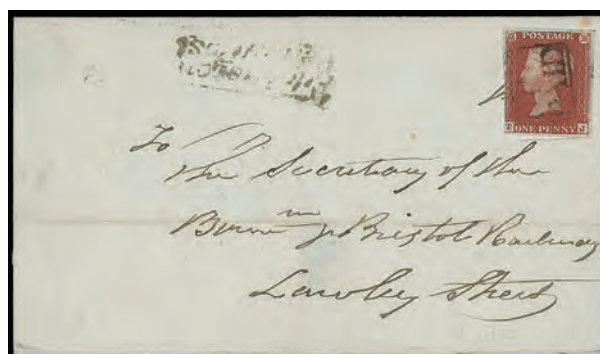 POSTAGE
ONE PENNY
To
The Secretary of the
Birm m & Bristol Railway
Lawley Street